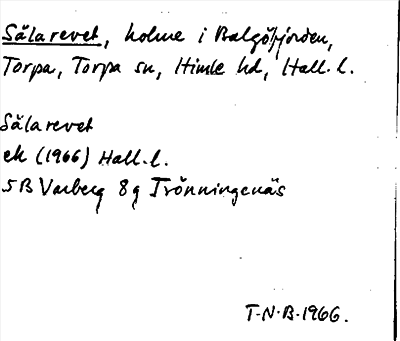 Sälarevet, holme i Balgöfjorden,
Torpa, Torpa sn, Himle hd, Hall. l.
Sälarevet
ek (1966) Hall. l.
5B Varberg 8g Trönningenäs
T.N.B. 1966.